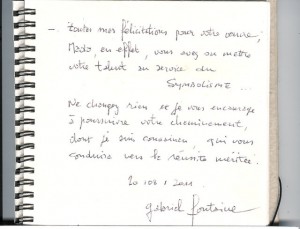 - Toutes mes félicitations pour votre oeuvre,
Mado, en effet, vous avez su mettre
votre talent au service du
SYMBOLISME ...
Ne changez rien et je vous encourage
à poursuivre votre cheminement,
dont je suis convaincu, qui vous
conduira vers la réussite méritée.
20 / 08 / 2011
Gabriel Fontaine